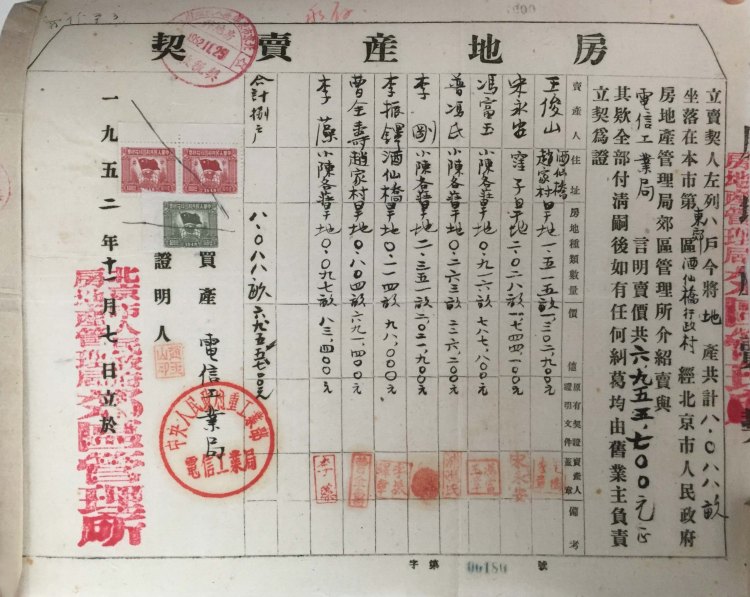 房地產賣契
立賣契人左列八戶今將地產共計八.〇八八畝
坐落在本市第東郊區酒仙橋行政村經北京市人民政府
房地產管理局郊區管理所介紹賣與
電信工業局言明賣價共六九五五.七〇〇元正
其欵全部付清嗣後如有任何糾葛均由舊業主負責
立契爲證
賣產人 住址 房地種類數量 價值 原有契證證明文件 賣產人蓋章 備考
王俊山 酒仙橋趙家村 旱地 一.五一五畝 一.三〇二.九〇〇元
宋永安 窪子 旱地 二.〇二八畝 一.七四四.一〇〇元
馮富玉 小陳各莊 旱地 〇.九一六畝 七八七.八〇〇元
曾馮氏 小陳各莊 旱地 〇.二六三畝 二二六.二〇〇元
李剛 小陳各莊 旱地 二.三五一畝 二.〇二一.九〇〇元
李振鐸 酒仙橋 旱地 〇.一一四畝 九八.〇〇〇元
曹全壽 趙家村 旱地 〇.八〇四畝 六九一.四〇〇元
李藻 小陳各莊 旱地 〇.〇九七畝 八三.四〇〇元
合計捌戶 八.〇八八.畝 六九五五七〇〇元
買產 電信工業局
中央人民政府重工業部
電信工業局
證明人
一九五二年十一月七日立於
北京市人民政府
房地產管理局郊區管理所
1952.11.29
字第 00180 號